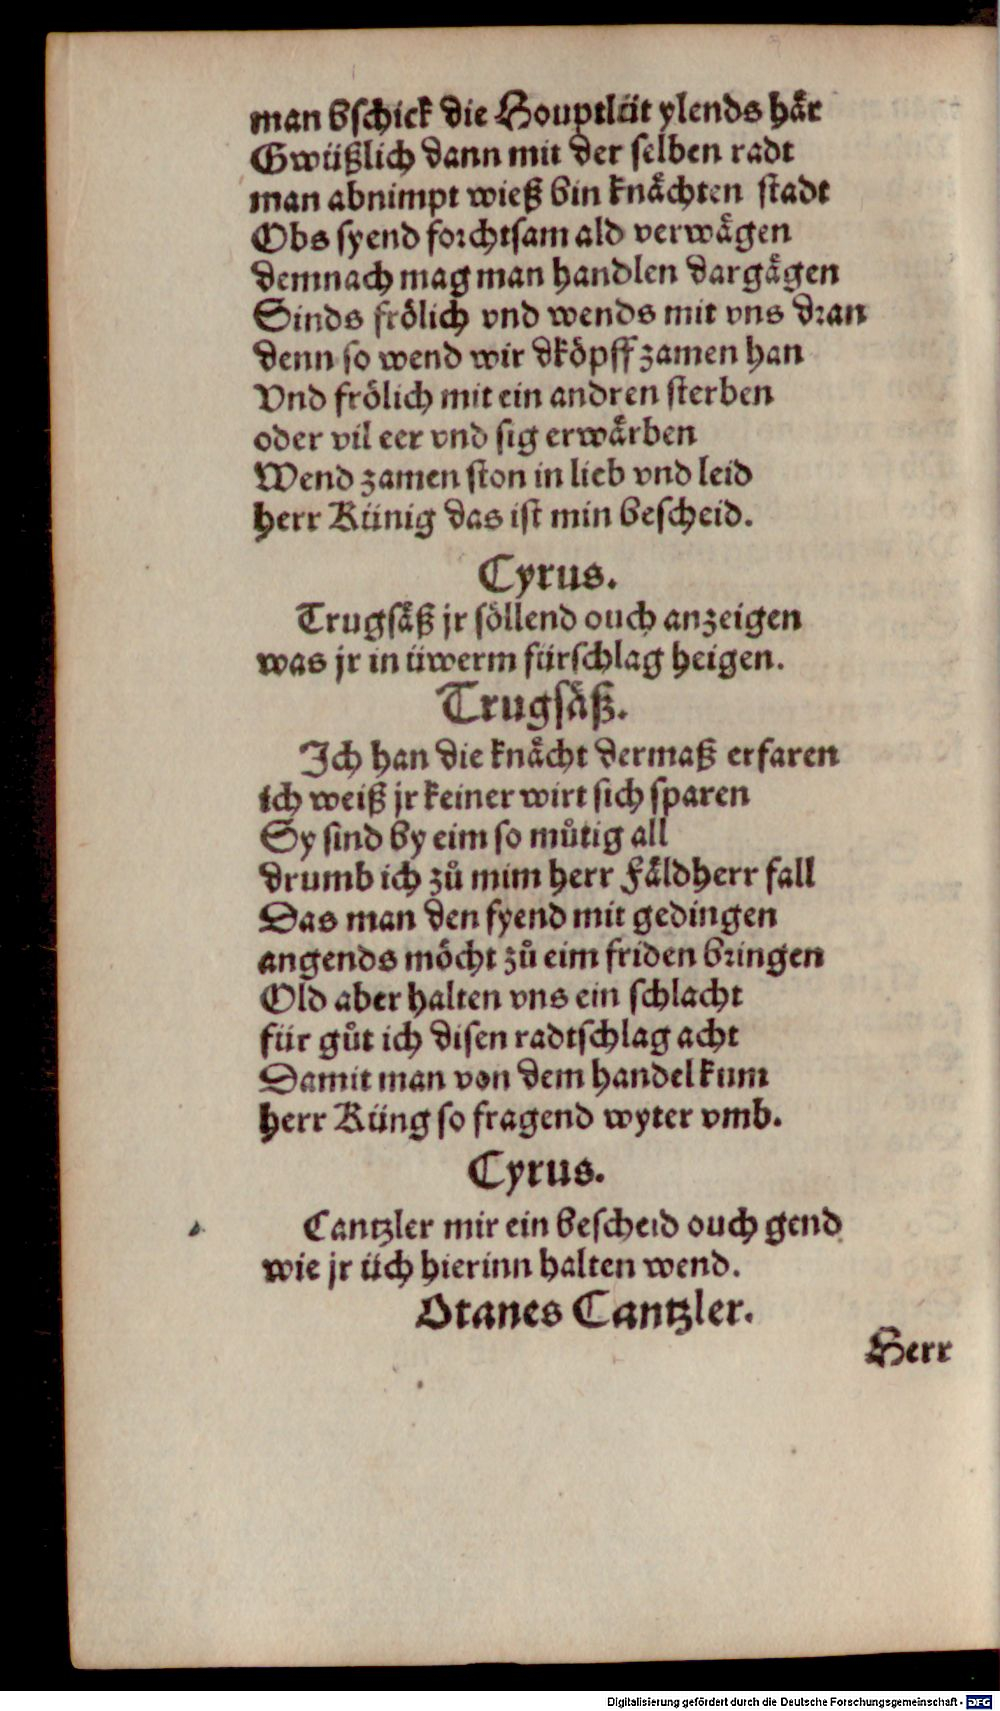 man bschick die Houptlüt ylends här
Gwüßlich dann mit der selben radt
man abnimpt wieß bin knächten stadt
Obs syend forchtsam ald verwägen
demnach mag man handlen dargägen
Sinds frölich vnd wends mit vns dran
denn so wend wir dköpff zamen han
Vnd frölich mit ein andren sterben
oder vil eer vnd sig erwärben
Wend zamen ston in lieb vnd leid
herr Künig das ist min bescheid.
Cyrus.
Trugsäß jr söllend ouch anzeigen
was jr in üwerm fürschlag heigen.
Trugsäß.
Ich han die knächt dermaß erfaren
ich weiß jr keiner wirt sich sparen
Sy sind by eim so můtig all
drumb ich zů mim herr Fäldherr fall
Das man den fyend mit gedingen
angends möcht zů eim friden bringen
Old aber halten vns ein schlacht
für gůt ich disen radtschlag acht
Damit man von dem handel kum
herr Küng so fragend wyter vmb.
Cyrus.
Cantzler mir ein bescheid ouch gend
wie jr üch hierinn halten wend.
Otanes Cantzler.
Herr
Digitalisierung gefördert durch die Deutsche Forschungsgemeinschaft - DFG